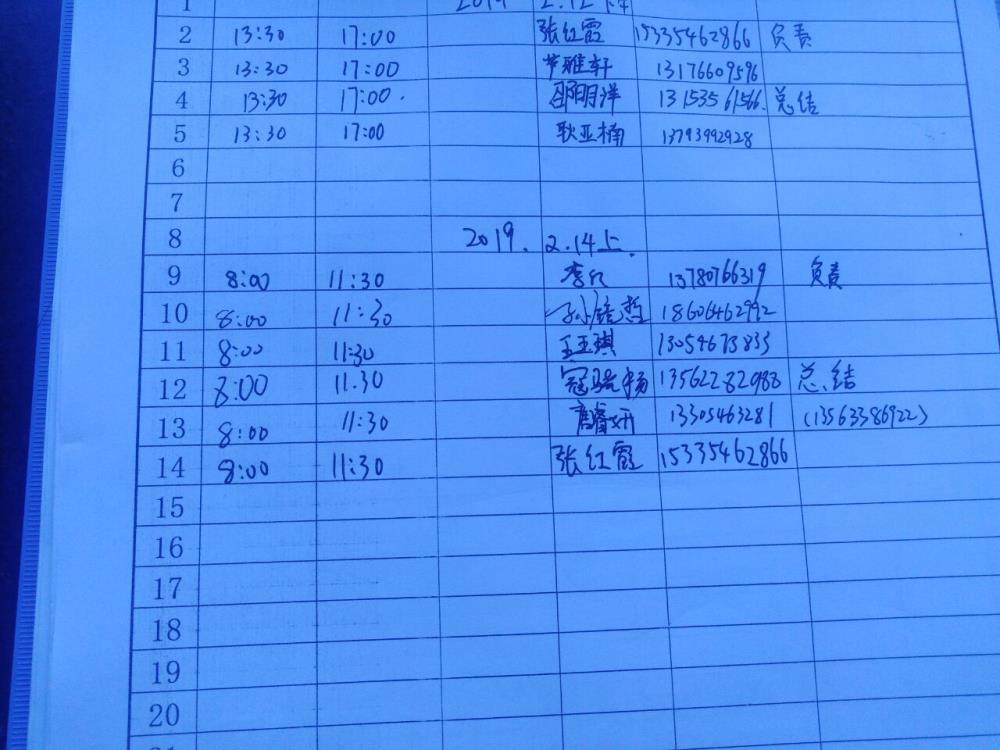 1 2019 2.12下
2 13:30 17:00 张红霞 15335462866 负责
3 13:30 17:00 雅轩 13176609596
4 13:30 17:00. 邵阳洋 13153561566. 总结
5 13:30 17:00 耿亚楠 13793992928
6
7
8 2019. 2.14上.
9 8:00 11:30 李 13780766319 负责
10 8:00 11:30 孙哲 18606462992
11 8:00 11:30 王亚琪 13054673833
12 8:00 11.30 冠杨 13562282988 总结
13 8:00 11:30 睿妍 13305463281 (13563386922)
14 8:00 11:30 张红霞 15335462866
15
16
17
18
19
20